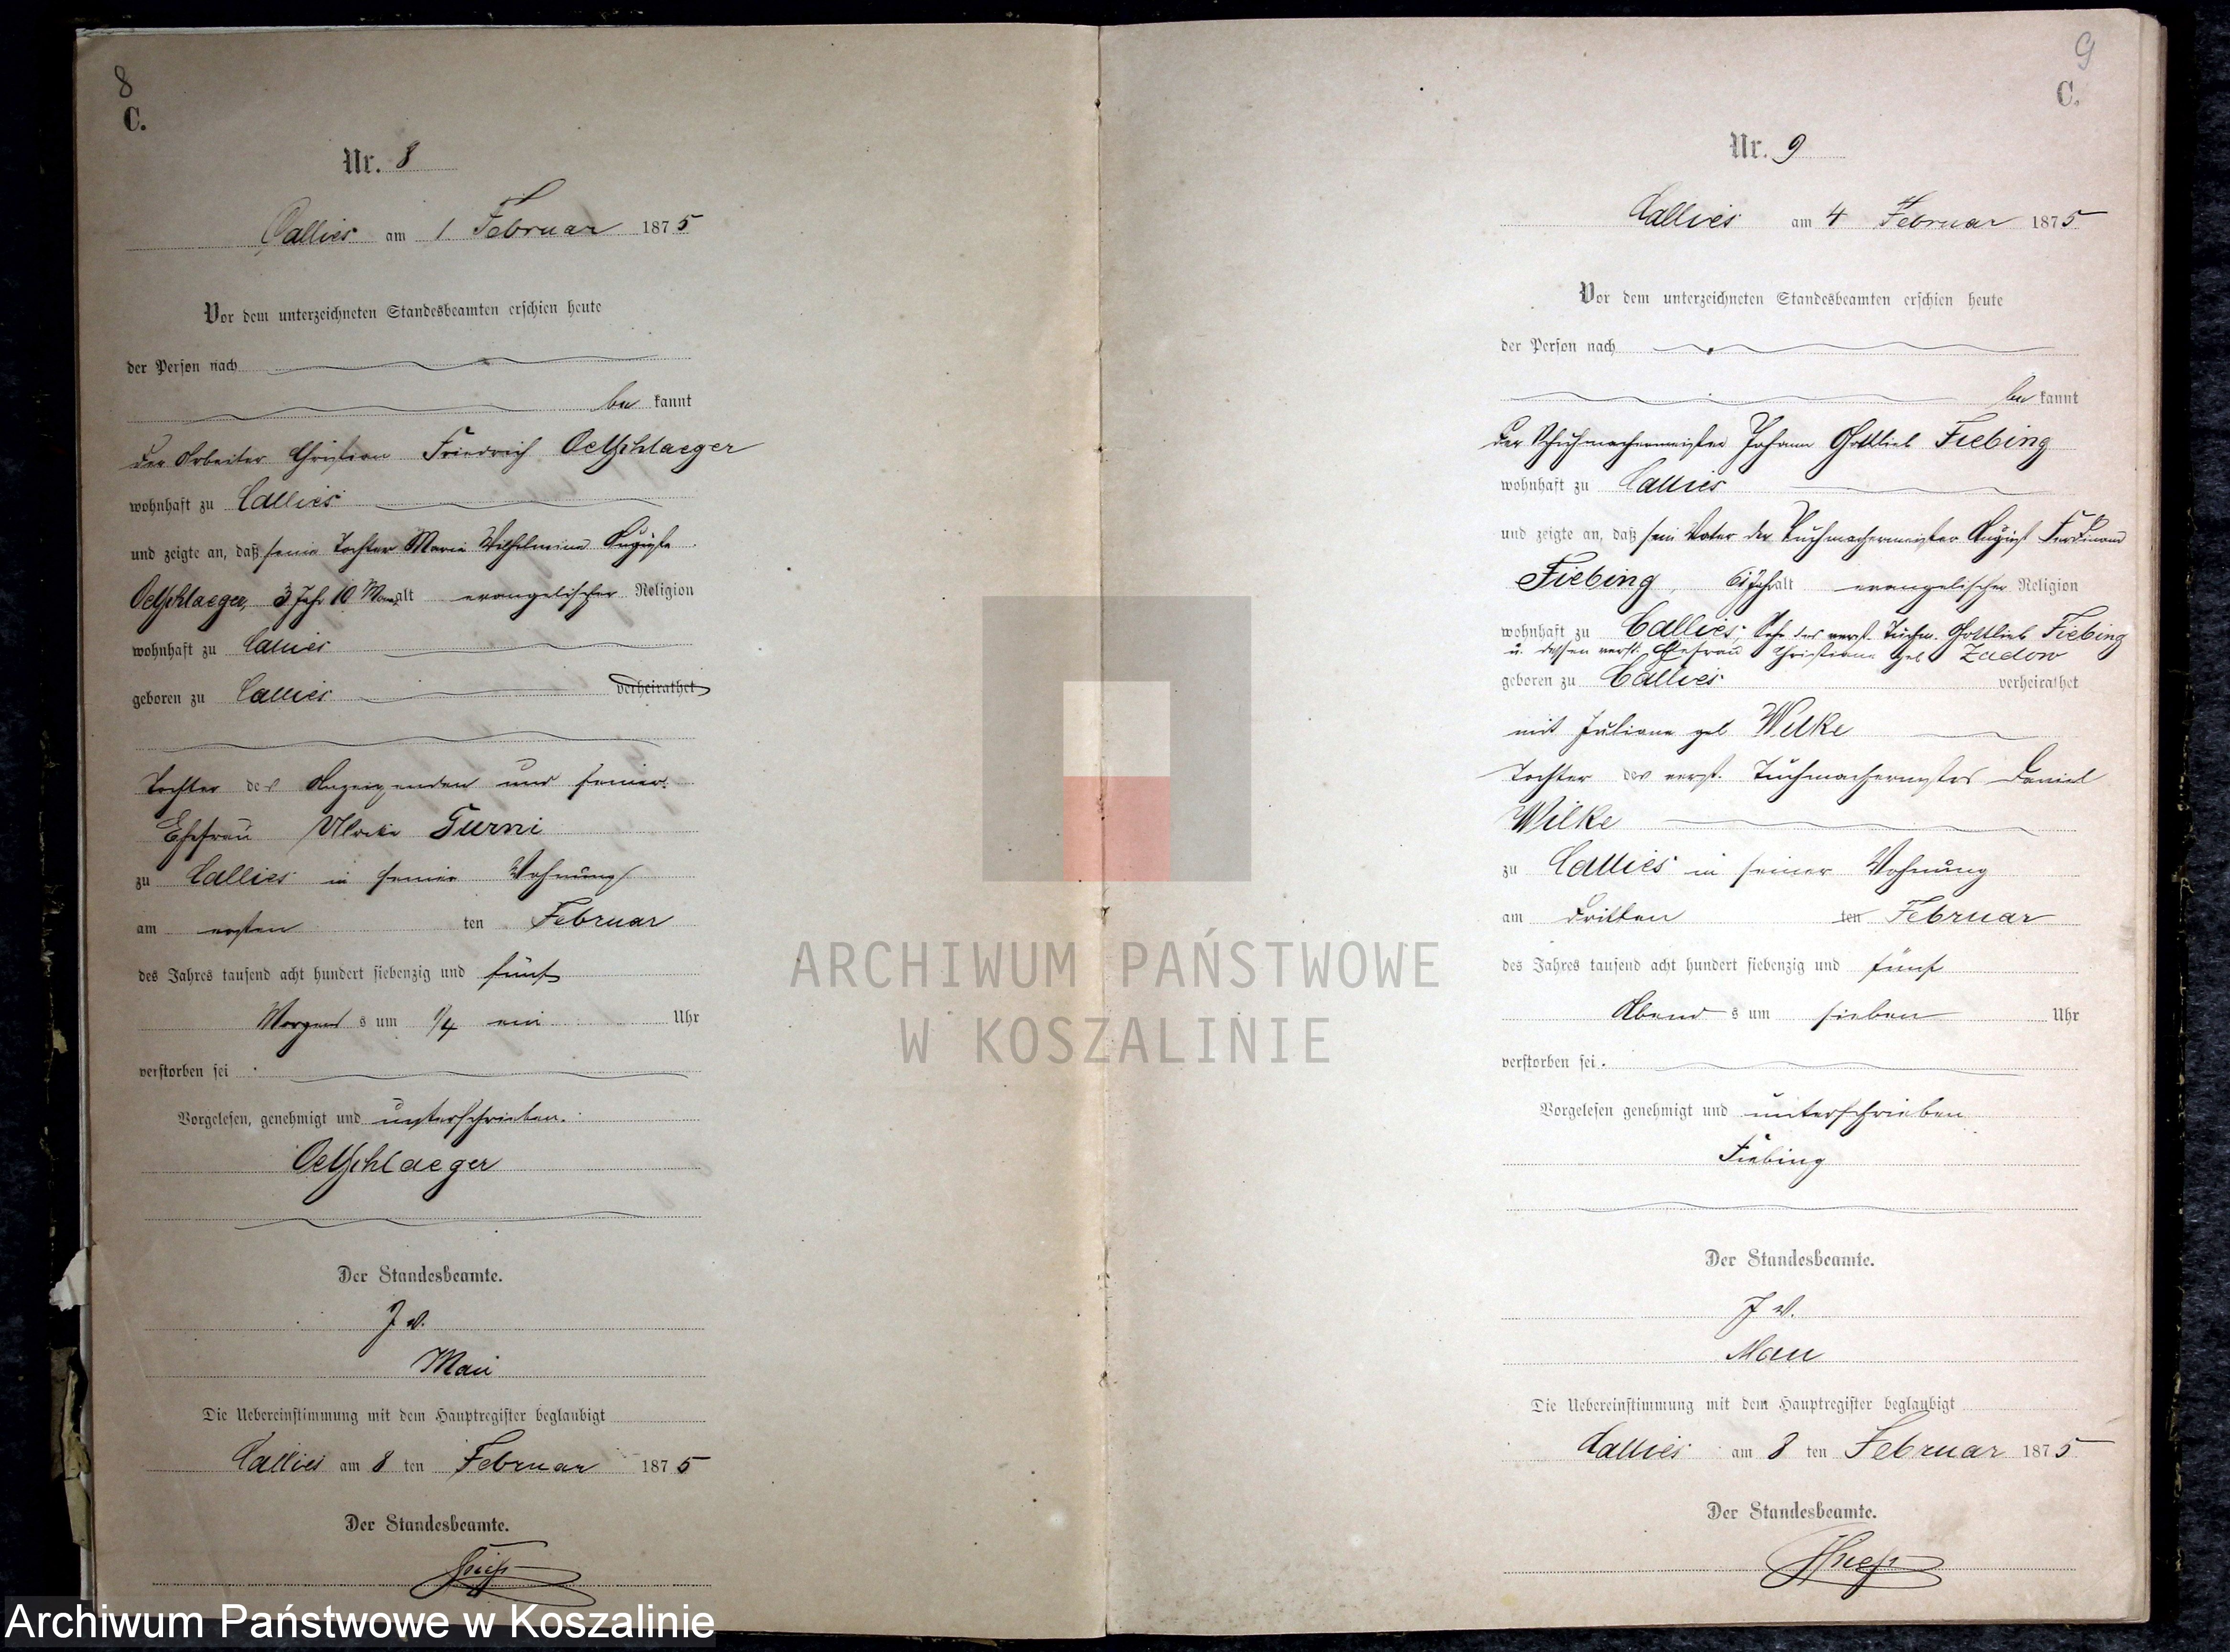 8
C.
Nr. 8
Callies am 1 Februar 1875
Vor dem unterzeichneten Standesbeamten erschien heute
der Person nach
be kannt
der Arbeiter Christian Friedrich Oeltzschlaeger
wohnhaft zu Callies
und zeigte an, daß seine Tochter Marie Wilhelmine Auguste
Oeltzschlaeger, 3 Jahr 10 Mon. alt evangelischer Religion
wohnhaft zu Callies
geboren zu Callies verheirathet
Tochter des Anzeigenden und seiner
Ehefrau Ulrike Turni
zu Callies in seiner Wohnung
am ersten ten Februar
des Jahres tausend acht hundert siebenzig und fünf
Morgens um 1/4 ein Uhr
verstorben sei
Vorgelesen, genehmigt und unterschrieben.
Oeltzschlaeger
Der Standesbeamte.
J. V.
Mau
Die Uebereinstimmung mit dem Hauptregister beglaubigt
Callies am 8 ten Februar 1875
Der Standesbeamte.
9
C.
Nr. 9
Callies am 4 Februar 1875
Vor dem unterzeichneten Standesbeamten erschien heute
der Person nach
be kannt
der Schuhmachermeister Johann Gottlieb Fiebing
wohnhaft zu Callies
und zeigte an, daß sein Vater der Tuchmachermeister August Ferdinand
Fiebing, 61 Jahr alt evangelischer Religion
wohnhaft zu Callies, Sohn des verst. Tuchm. Gottlieb Fiebing
u. dessen verst. Ehefrau Christiane geb Zadow
geboren zu Callies verheirathet
mit Juliane geb Wilke
Tochter des verst. Tuchmachermstrs Daniel
Wilke
zu Callies in seiner Wohnung
am dritten ten Februar
des Jahres tausend acht hundert siebenzig und fünf
Abends um sieben Uhr
verstorben sei.
Vorgelesen genehmigt und unterschrieben
Fiebing
Der Standesbeamte.
J. V.
Mau
Die Uebereinstimmung mit dem Hauptregister beglaubigt
Callies am 8 ten Februar 1875
Der Standesbeamte.
ARCHIWUM PAŃSTWOWE
W KOSZALINIE
Archiwum Państwowe w Koszalinie